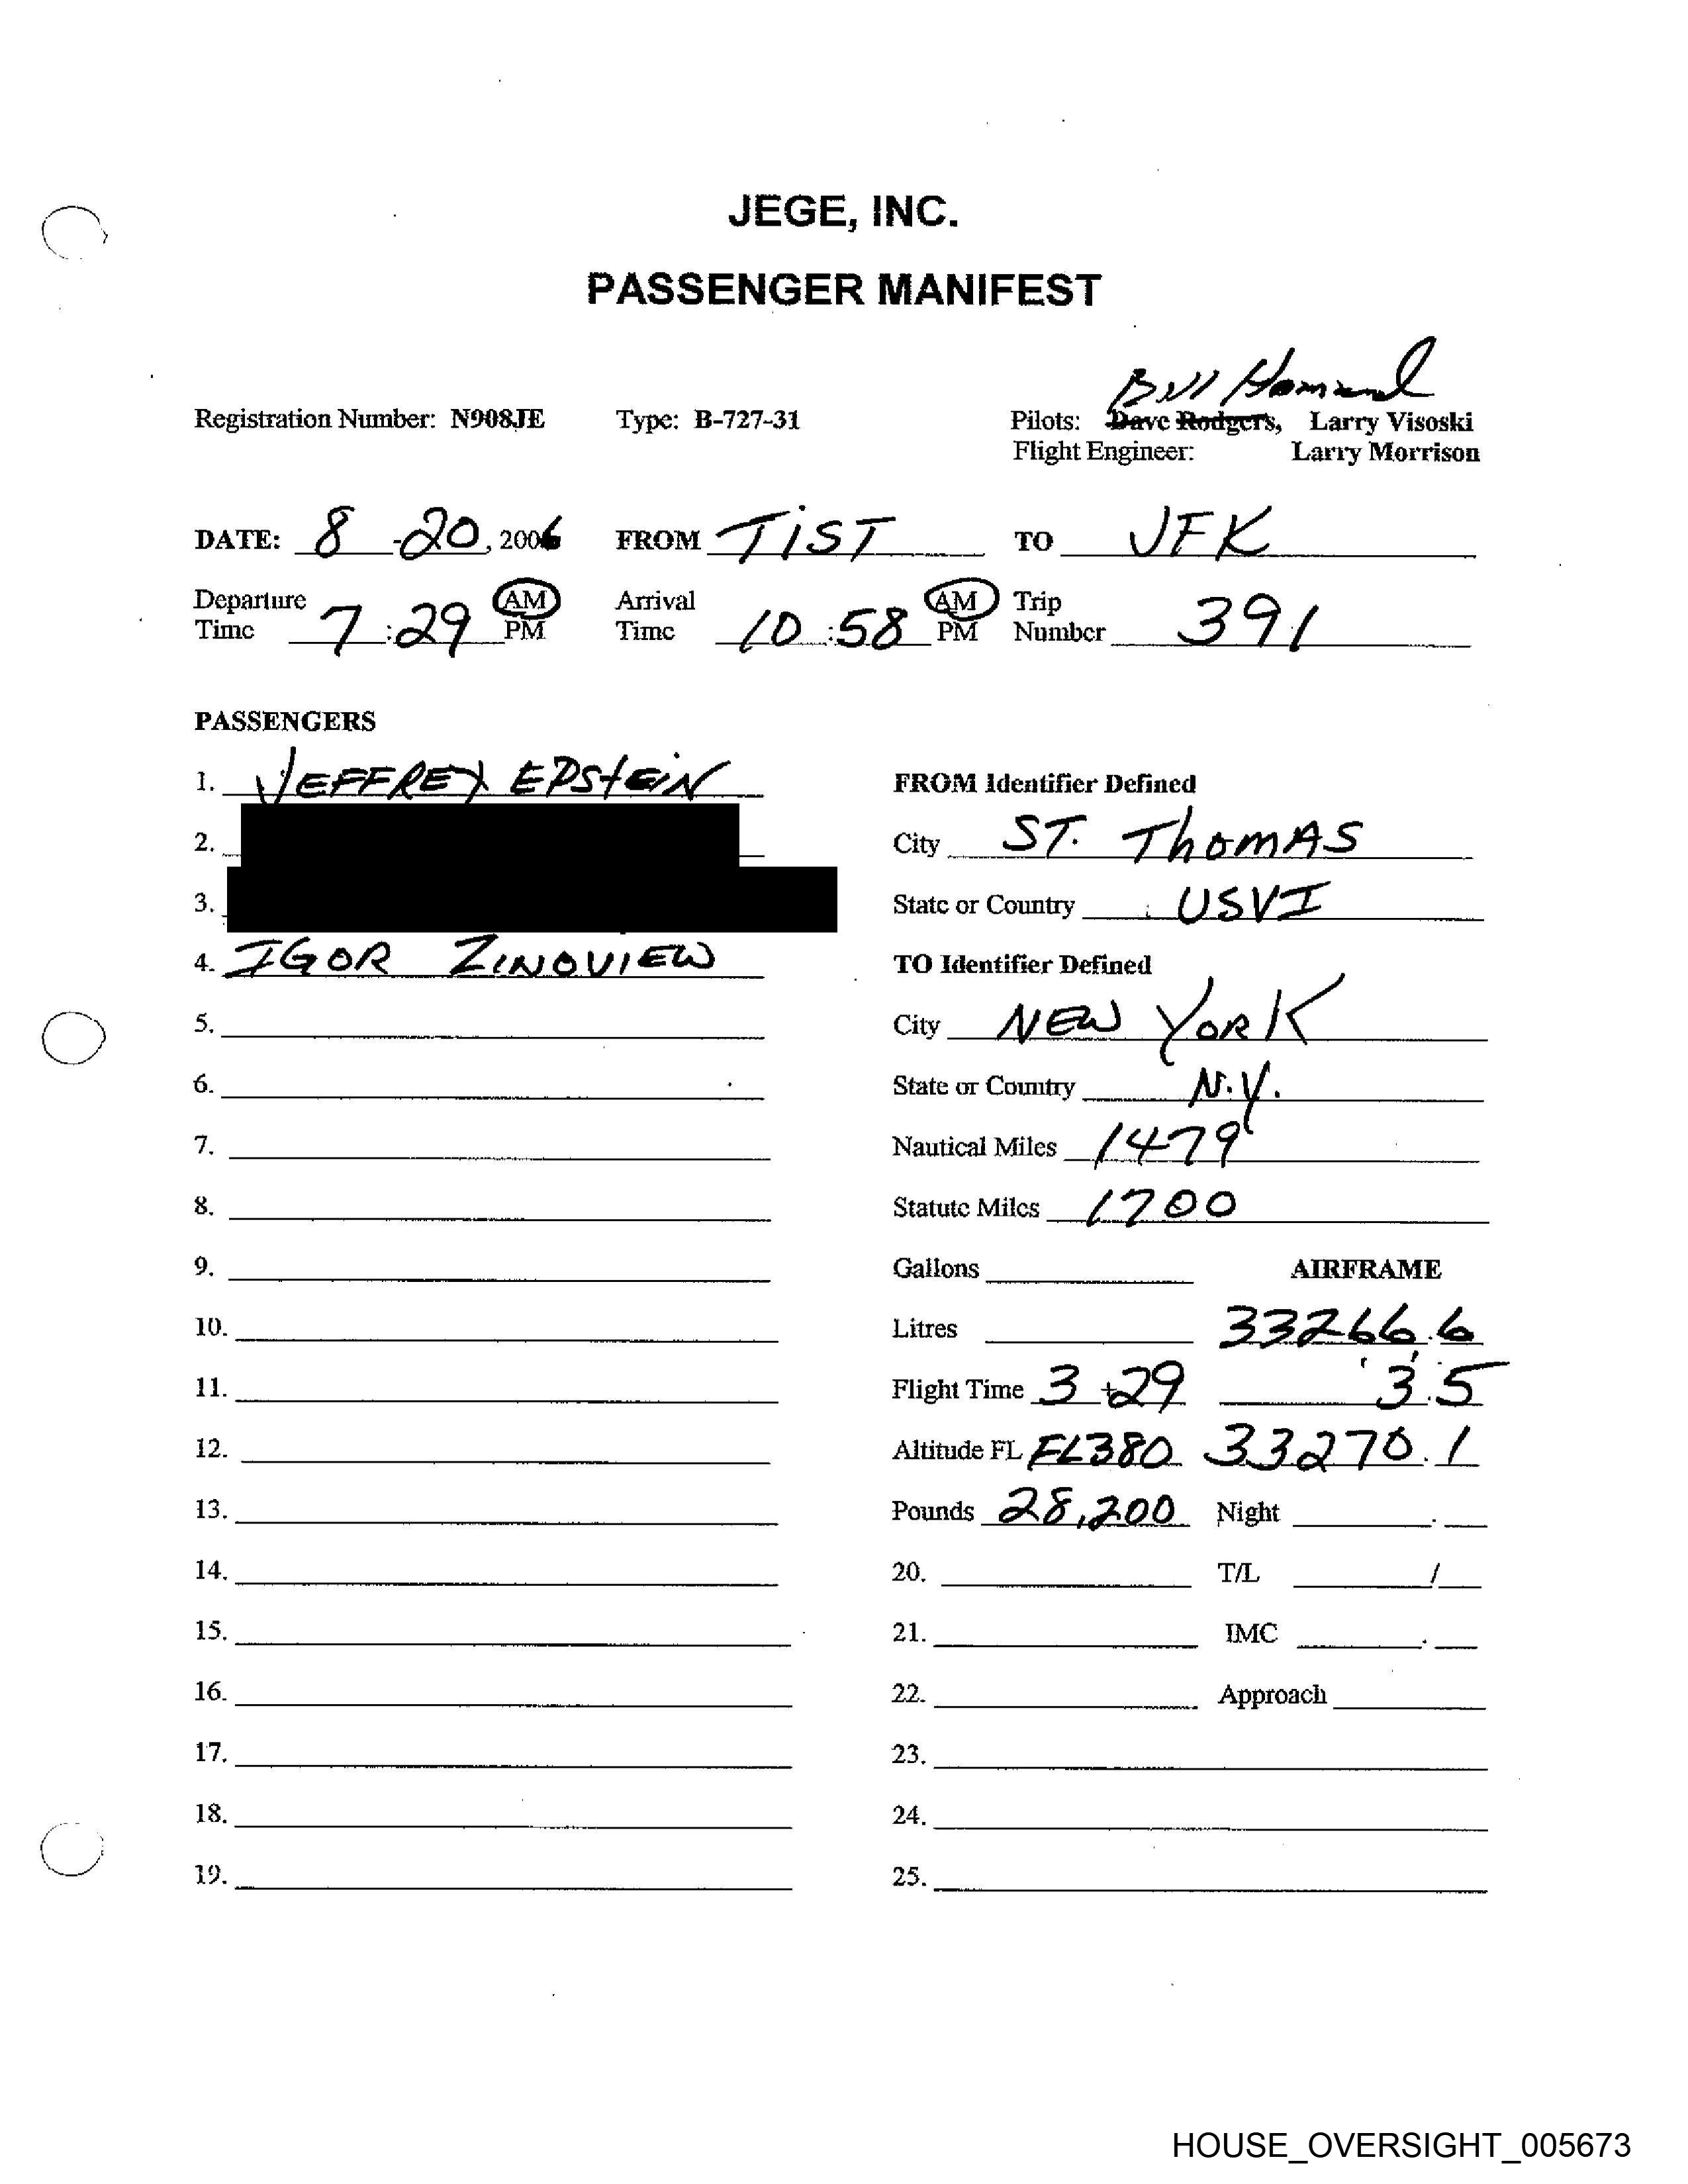 JEGE, INC.
PASSENGER MANIFEST
Bill
Registration Number: N908JE Type: B-727-31 Pilots: Dave Rodgers, Larry Visoski
Flight Engineer: Larry Morrison
DATE: 8 -20, 2006 FROM TiST TO JFK
Departure Time 7:29 AM PM Arrival Time 10:58 AM PM Trip Number 391
PASSENGERS
1. JEFFREY EPStEiN FROM Identifier Defined
2. City ST. ThomAS
3. State or Country USVI
4. IGOR ZINOVIEW TO Identifier Defined
5. City NEW YORK
6. State or Country N.Y.
7. Nautical Miles 1479
8. Statute Miles 1700
9. Gallons AIRFRAME
10. Litres 33266.6
11. Flight Time 3 +29 3.5
12. Altitude FL FL380 33270.1
13. Pounds 28,200 Night .
14. 20. T/L /
15. 21. IMC .
16. 22. Approach
17. 23.
18. 24.
19. 25.
HOUSE_OVERSIGHT_005673